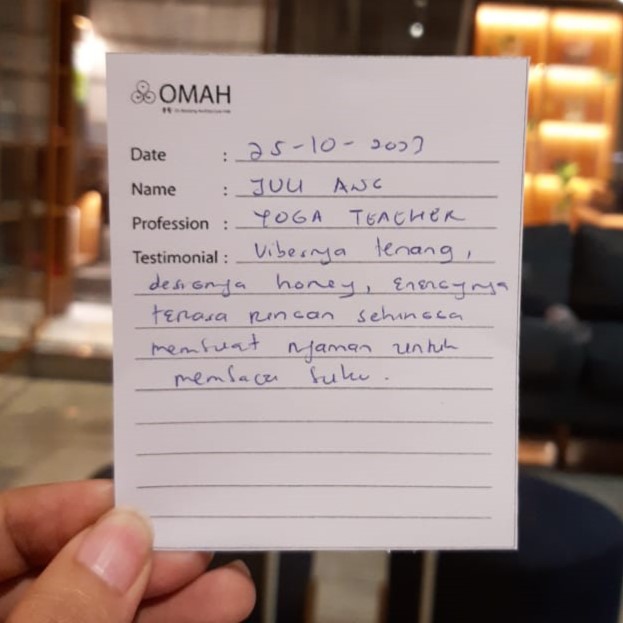 OMAH
Date : 25-10-2023
Name : JULI ANG
Profession : YOGA TEACHER
Testimonial : Vibesnya tenang,
designya homey, Energynya
terasa ringan sehingga
membuat nyaman untuk
membaca buku.